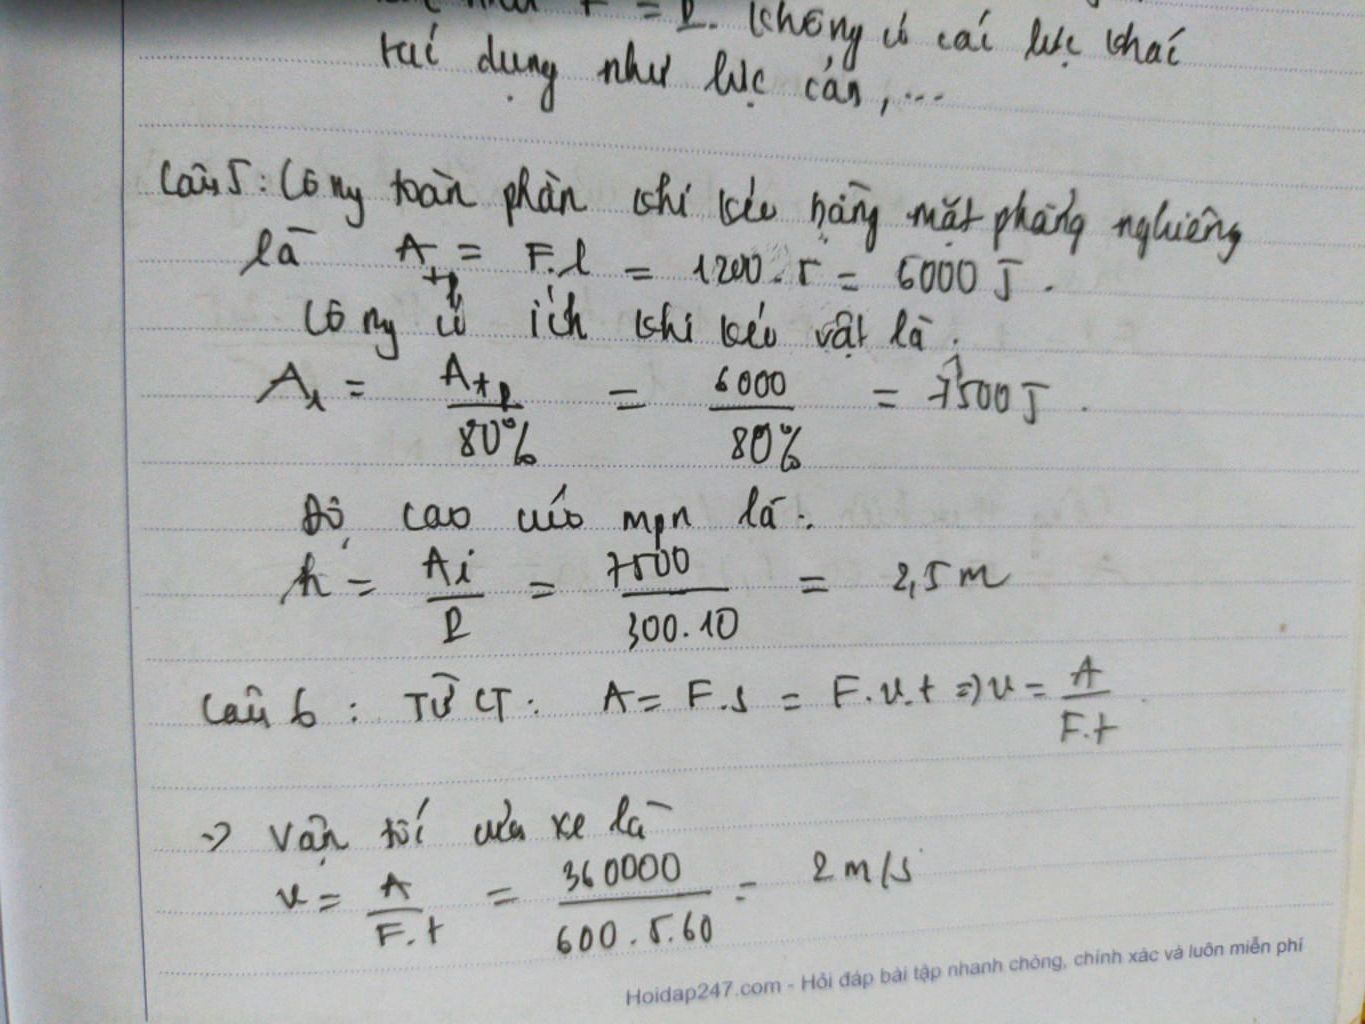 = P. Không có các lực khác
tác dụng như lực cản, ...
Câu 5: Công toàn phần khi kéo bằng mặt phẳng nghiêng
là Atp = F.l = 1200.5 = 6000 J.
Công có ích khi kéo vật là:
Ai = Atp / 80% = 6000 / 80% = 7500 J.
Độ cao của mpn là:
h = Ai / P = 7500 / 300.10 = 2,5 m
Câu 6: Từ CT: A = F.s = F.v.t => v = A / F.t
=> Vận tốc của xe là
v = A / F.t = 360000 / 600.5.60 = 2 m/s
Hoidap247.com - Hỏi đáp bài tập nhanh chóng, chính xác và luôn miễn phí